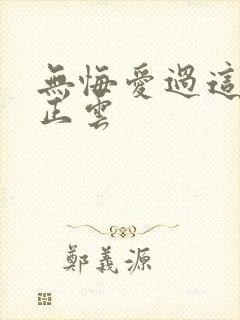 無悔愛過這
正雲
鄭義源